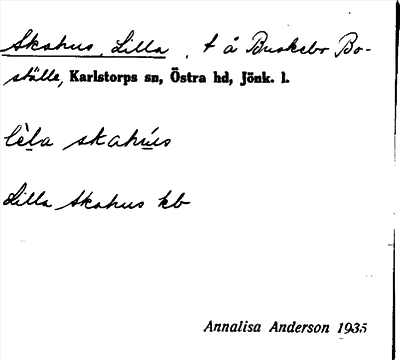 Skahus, Lilla, t å Buskebo Bo-
ställe, Karlstorps sn, Östra hd, Jönk. l.
lìla skahús
Lilla Skahus kb
Annalisa Anderson 1935